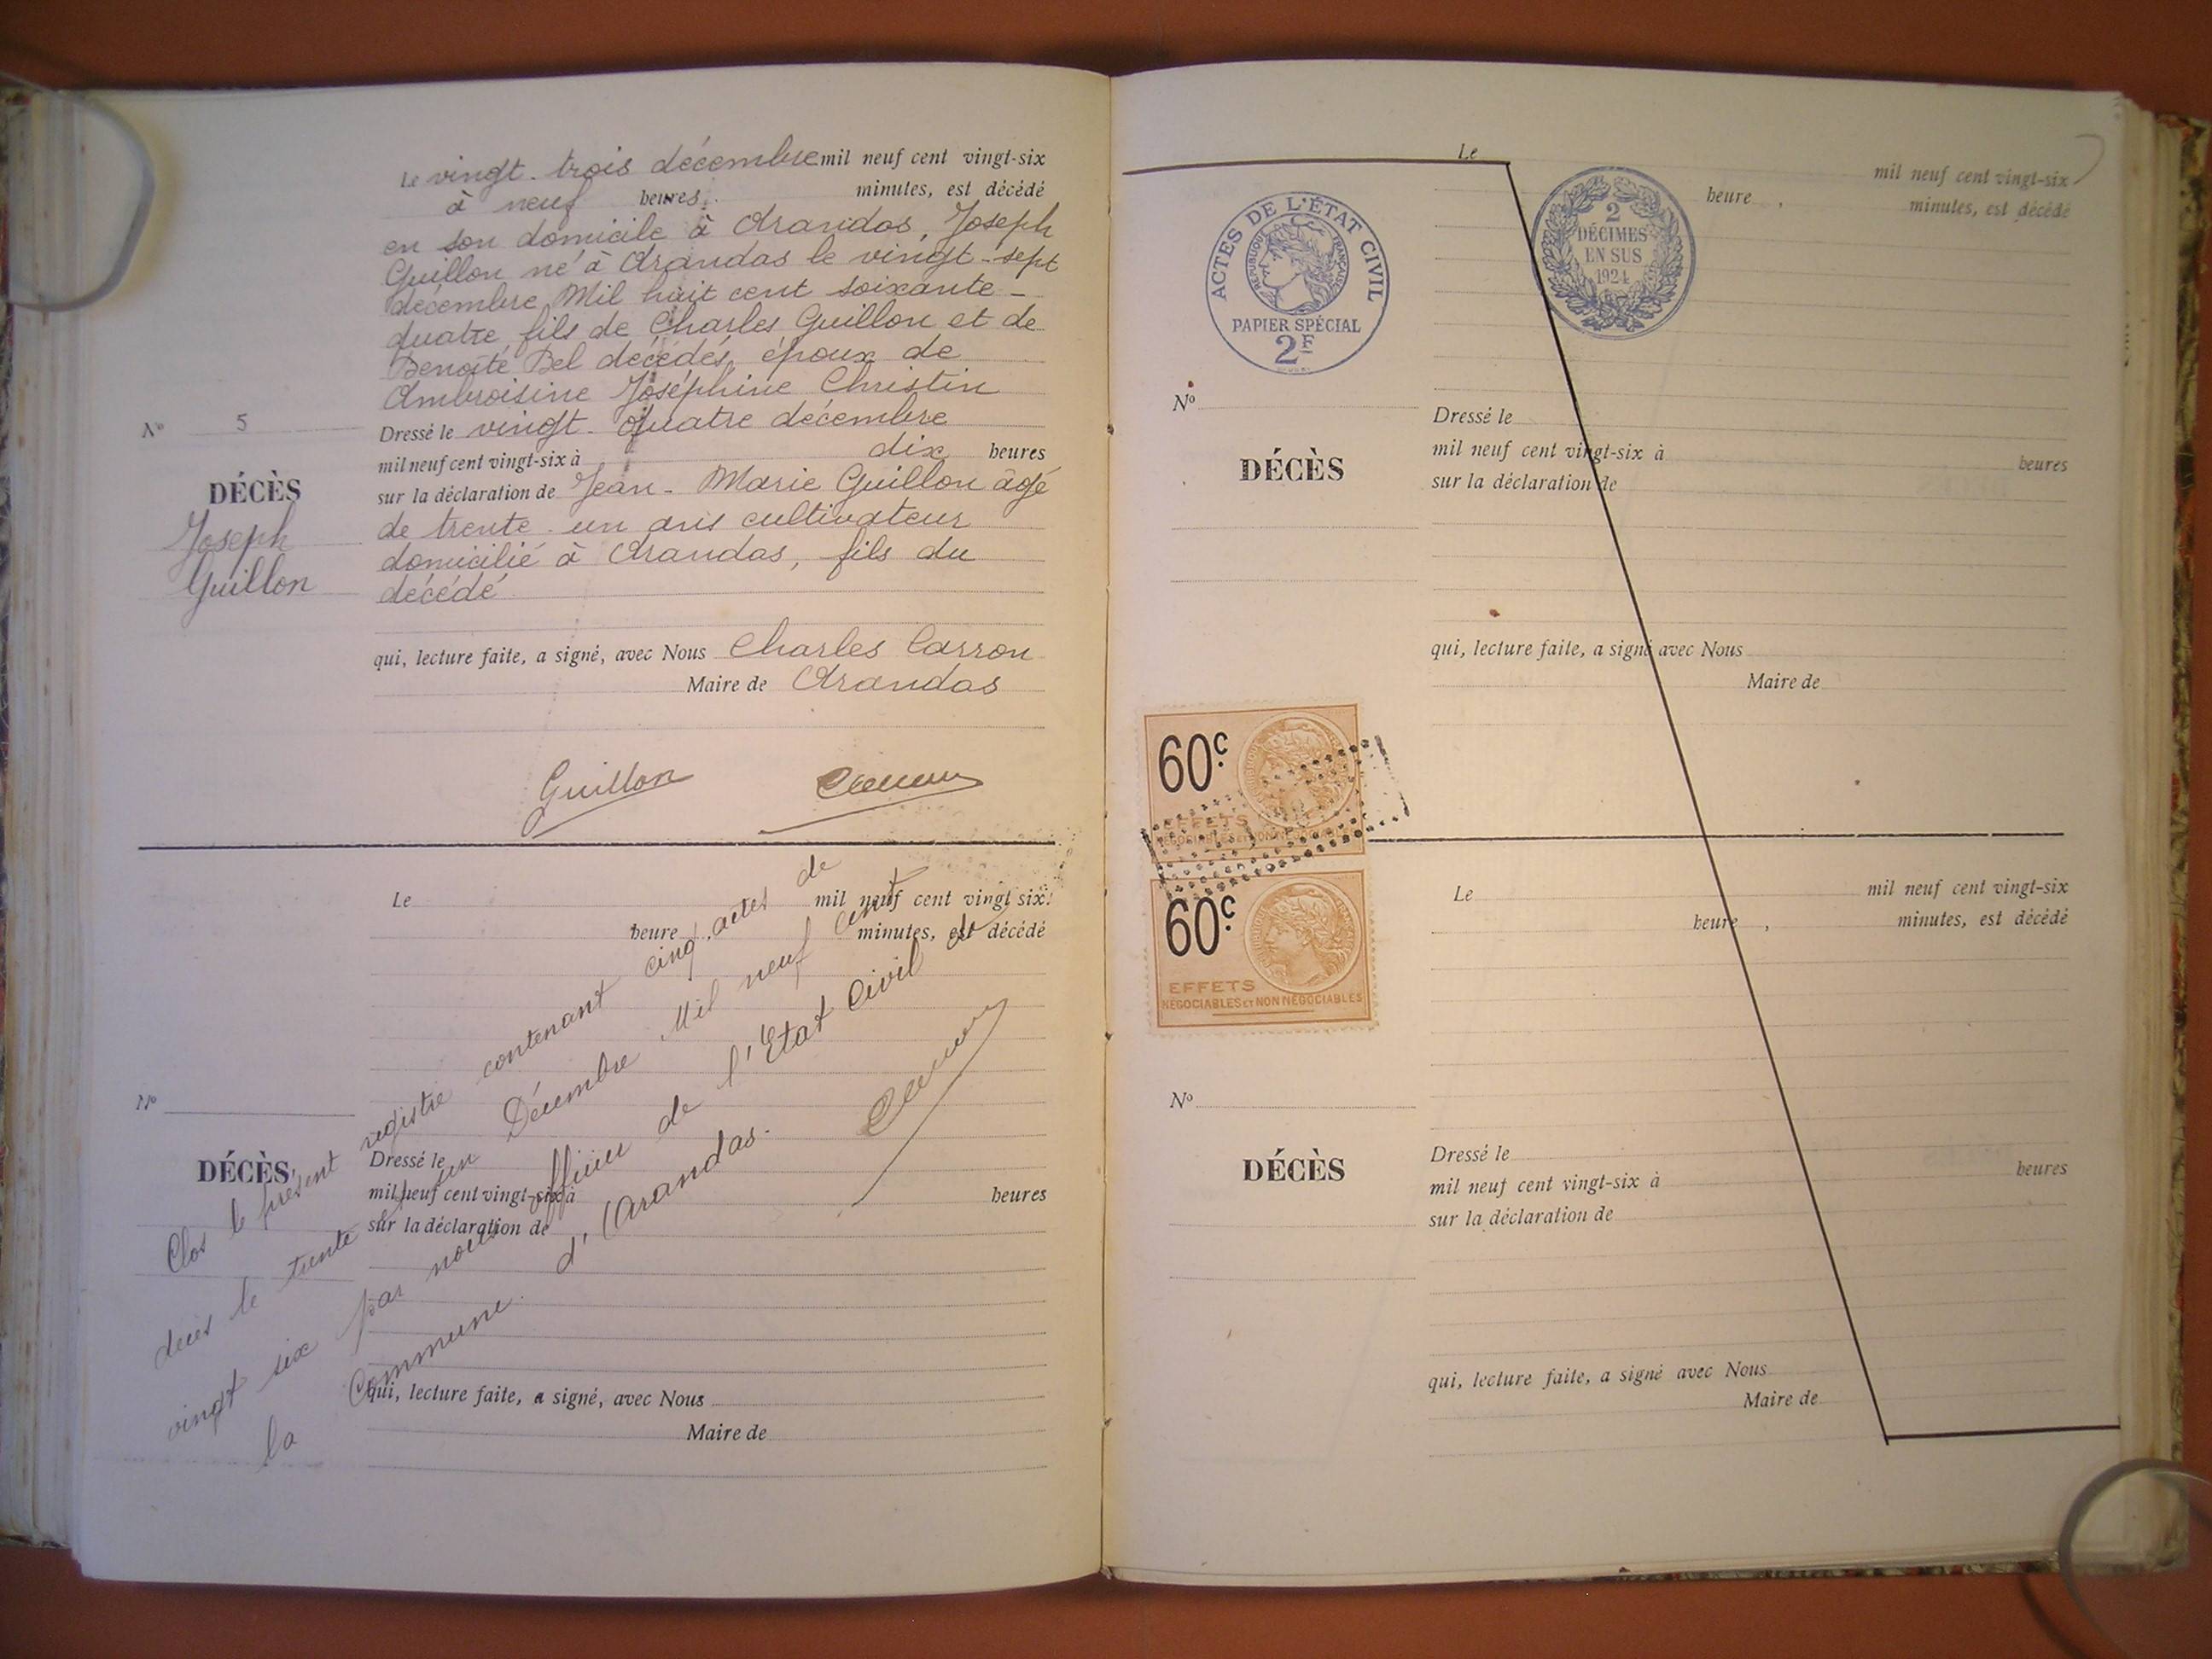 Le vingt-trois décembre mil neuf cent vingt-six
à neuf heures, minutes, est décédé
en son domicile à Arandas, Joseph
Guillon né à Arandas le vingt-sept
décembre Mil huit cent soixante-
quatre fils de Charles Guillon et de
Benoîte Bel décédés, époux de
Ambroisine Joséphine Christin
Nº 5
DÉCÈS
Joseph
Guillon
Dressé le vingt-quatre décembre
mil neuf cent vingt-six à dix heures
sur la déclaration de Jean-Marie Guillon âgé
de trente-un ans cultivateur
domicilié à Arandas, fils du
décédé
qui, lecture faite, a signé, avec Nous Charles Carron
Maire de Arandas
Guillon
Le mil neuf cent vingt six
heure, minutes, est décédé
Nº
DÉCÈS,
Dressé le
mil neuf cent vingt-six à heures
sur la déclaration de
qui, lecture faite, a signé, avec Nous
Maire de
Clos le présent registre contenant cinq actes de
décès le trente et un Décembre Mil neuf cent
vingt six par nous officier de l'Etat Civil de
la Commune d'Arandas.
Le mil neuf cent vingt-six
heure, minutes, est décédé
ACTES DE L'ÉTAT CIVIL
RÉPUBLIQUE FRANÇAISE
PAPIER SPÉCIAL
2F
2
DÉCIMES
EN SUS
1924
Nº
DÉCÈS
Dressé le
mil neuf cent vingt-six à heures
sur la déclaration de
qui, lecture faite, a signé avec Nous
Maire de
60c.
EFFETS
NÉGOCIABLES ET NON NÉGOCIABLES
60c.
EFFETS
NÉGOCIABLES ET NON NÉGOCIABLES
Le mil neuf cent vingt-six
heure, minutes, est décédé
Nº
DÉCÈS
Dressé le
mil neuf cent vingt-six à heures
sur la déclaration de
qui, lecture faite, a signé avec Nous
Maire de